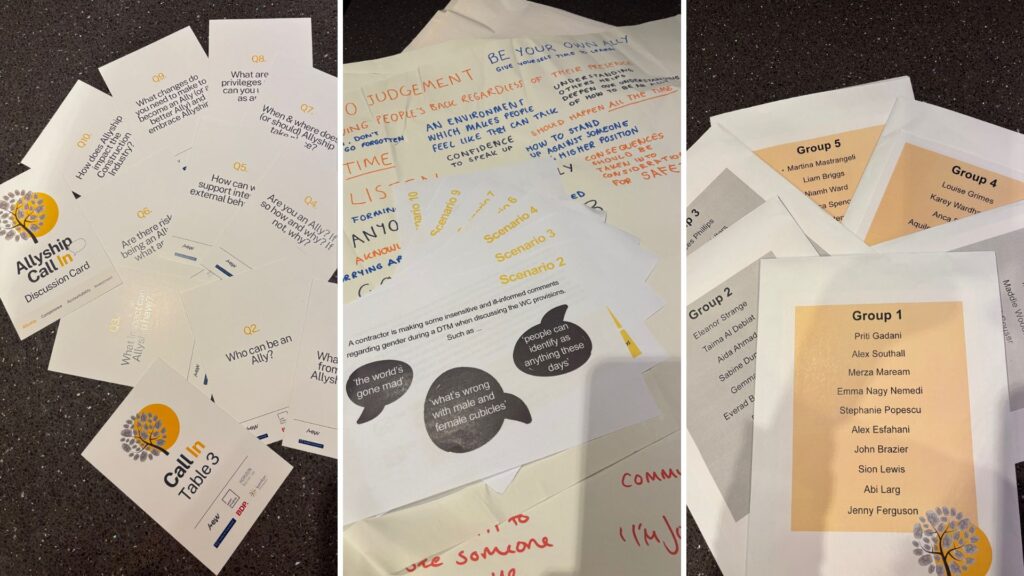 Q8.
What are
privileges
can you u
as a
Q9.
What changes do
you need to make to
become an Ally (or a
better Ally) and
embrace Allyshi
Q7.
When & where does
(or should) Allyship
take
Q10.
How does Allyship
impact the
Construction
Industry?
Q5.
How can w
support inte
external beh
Q4.
Are you an Ally? If
so how and why?
not, why?
Q6.
Are there risk
being an Ally
what ar
Allyship
Call In
Discussion Card
Q3.
Q2.
Who can be an
Ally?
Wha
from
Allysh
Call In
Table 3
AHW
BDP.
BE YOUR OWN ALLY
GIVE YOURSELF TIME TO LEARN
O JUDGEMENT
VING PEOPLE'S BACK REGARDLESS OF THEIR PRESENCE
DON'T
GO FORGOTTEN
AN ENVIRONMENT
WHICH MAKES PEOPLE
FEEL LIKE THEY CAN TALK
UNDERSTANDING
OTHERS HELPS
DEEPEN OUR UNDERSTANDING
OF HOW TO BE A
SHOULD HAPPEN ALL THE TIME
TIME
CONFIDENCE
TO SPEAK UP
HOW TO STAND
UP AGAINST SOMEONE
HIGHER POSITION
CONSEQUENCES
SHOULD BE
TAKEN INTO
CONSIDERATION
FOR SAFET
LISTEN
FORMIN
ANYO
ACKNOW
RRYING AF
Scenario 10
Scenario 9
Scenario 6
Scenario 4
Scenario 3
Scenario 2
A contractor is making some insensitive and ill-informed comments
regarding gender during a DTM when discussing the WC provisions.
Such as ...
'the world's
gone mad'
'what's wrong
with male and
female cubicles'
people can
identify as
anything these
days'
COMMU
to
someone
"I'M
Group 5
Martina Mastrangeli
Liam Briggs
Niamh Ward
na Spenc
Group 4
Louise Grimes
Karey Wardh
Anca
Aquile
p 3
es Phillips
Maddie Wo
Group 2
Eleanor Strange
Taima Debiat
Aida Ahmad
Sabine Dun
Gemm
Everad B
Group 1
Priti Gadani
Alex Southall
Merza Maream
Emma Nagy Nemedi
Stephanie Popescu
Alex Esfahani
John Brazier
Sion Lewis
Abi Larg
Jenny Ferguson